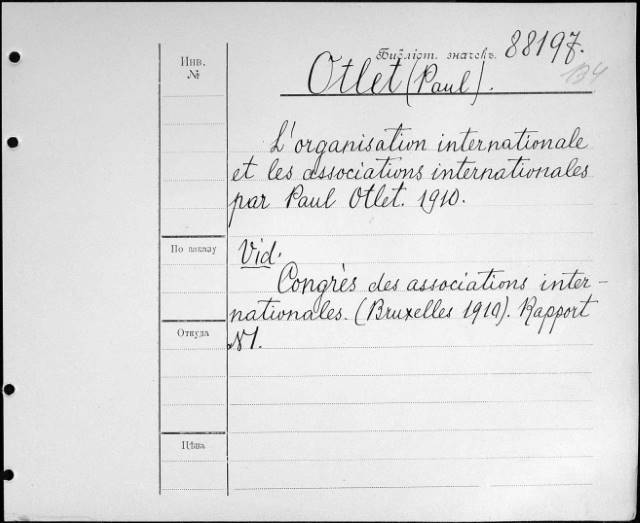 Библіот. значекъ. 88197.
134
Инв.
№
Otlet (Paul).
L'organisation internationale
et les associations internationales
par Paul Otlet. 1910.
По какому
Vid.
Congrès des associations inter-
nationales. (Bruxelles 1910). Rapport
Откуда
№1.
Цѣна